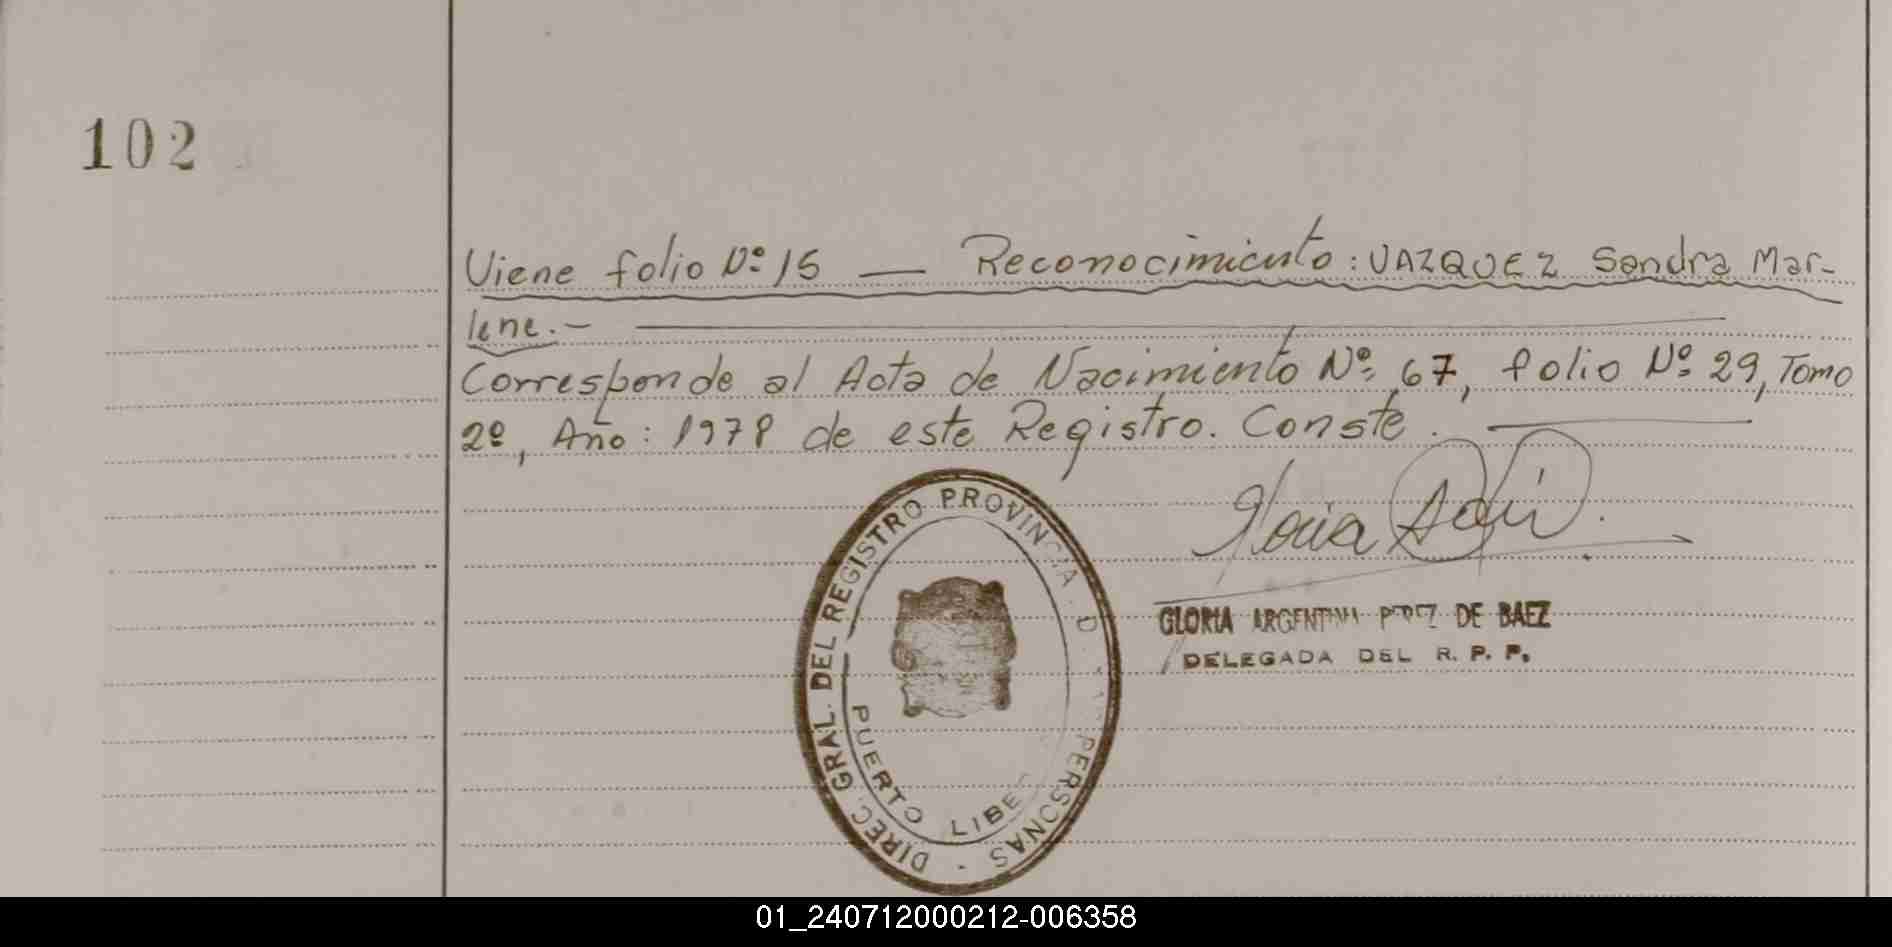 102
Viene folio Nº 15 — Reconocimiento: VAZQUEZ Sandra Mar-
lene.-
Corresponde al Acta de Nacimiento Nº 67, folio Nº 29, Tomo
2º, Año: 1978 de este Registro. Conste.
DIREC. GRAL. DEL REGISTRO PROVINCIA PERSONAS
PUERTO LIBE
GLORIA ARGENTINA PEREZ DE BAEZ
DELEGADA DEL R. P. P.
01_240712000212-006358